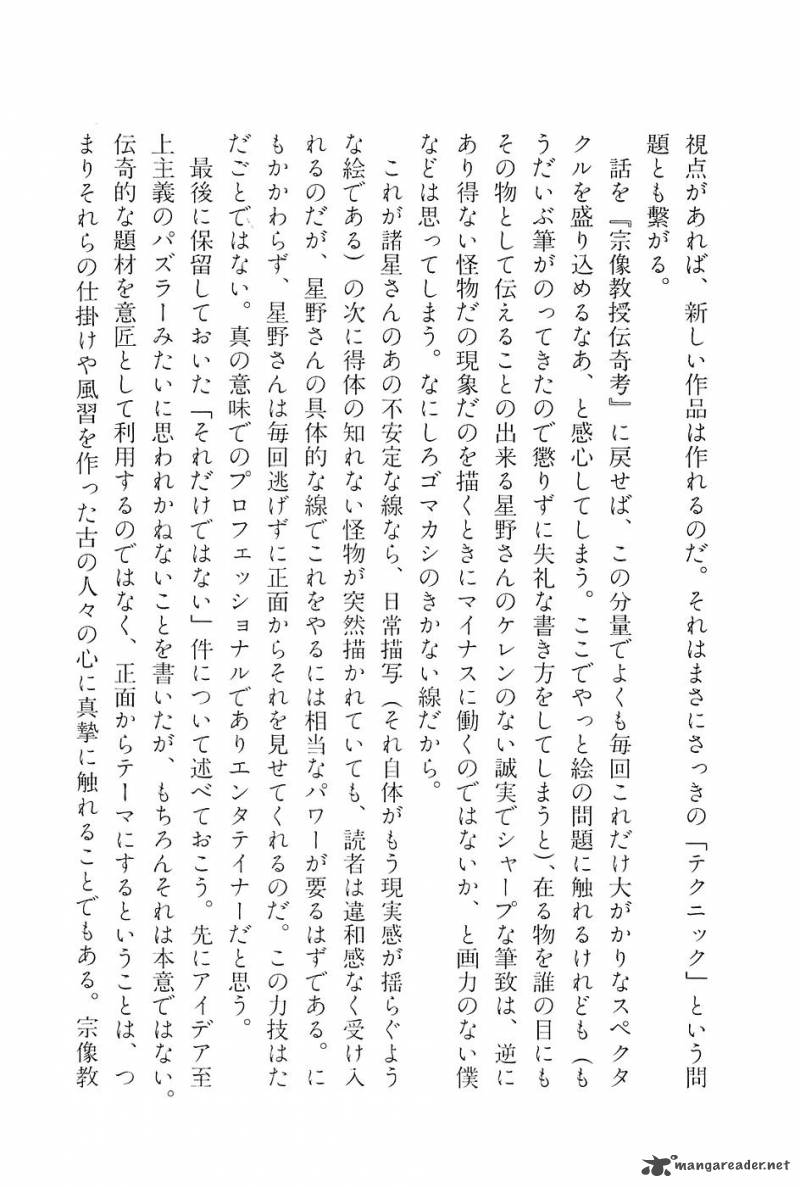 視点があれば、新しい作品は作れるのだ。それはまさにさっきの「テクニック」という問
題とも繋がる。
話を『宗像教授伝奇考』に戻せば、この分量でよくも毎回これだけ大がかりなスペクタ
クルを盛り込めるなあ、と感心してしまう。ここでやっと絵の問題に触れるけれども（も
うだいぶ筆がのってきたので懲りずに失礼な書き方をしてしまうと）、在る物を誰の目にも
その物として伝えることの出来る星野さんのケレンのない誠実でシャープな筆致は、逆に
あり得ない怪物だの現象だのを描くときにマイナスに働くのではないか、と画力のない僕
などは思ってしまう。なにしろゴマカシのきかない線だから。
これが諸星さんのあの不安定な線なら、日常描写（それ自体がもう現実感が揺らぐよう
な絵である）の次に得体の知れない怪物が突然描かれていても、読者は違和感なく受け入
れるのだが、星野さんの具体的な線でこれをやるには相当なパワーが要るはずである。に
もかかわらず、星野さんは毎回逃げずに正面からそれを見せてくれるのだ。この力技はた
だごとではない。真の意味でのプロフェッショナルでありエンタテイナーだと思う。
最後に保留しておいた「それだけではない」件について述べておこう。先にアイデア至
上主義のパズラーみたいに思われかねないことを書いたが、もちろんそれは本意ではない。
伝奇的な題材を意匠として利用するのではなく、正面からテーマにするということは、つ
まりそれらの仕掛けや風習を作った古の人々の心に真摯に触れることでもある。宗像教
mangareader.net